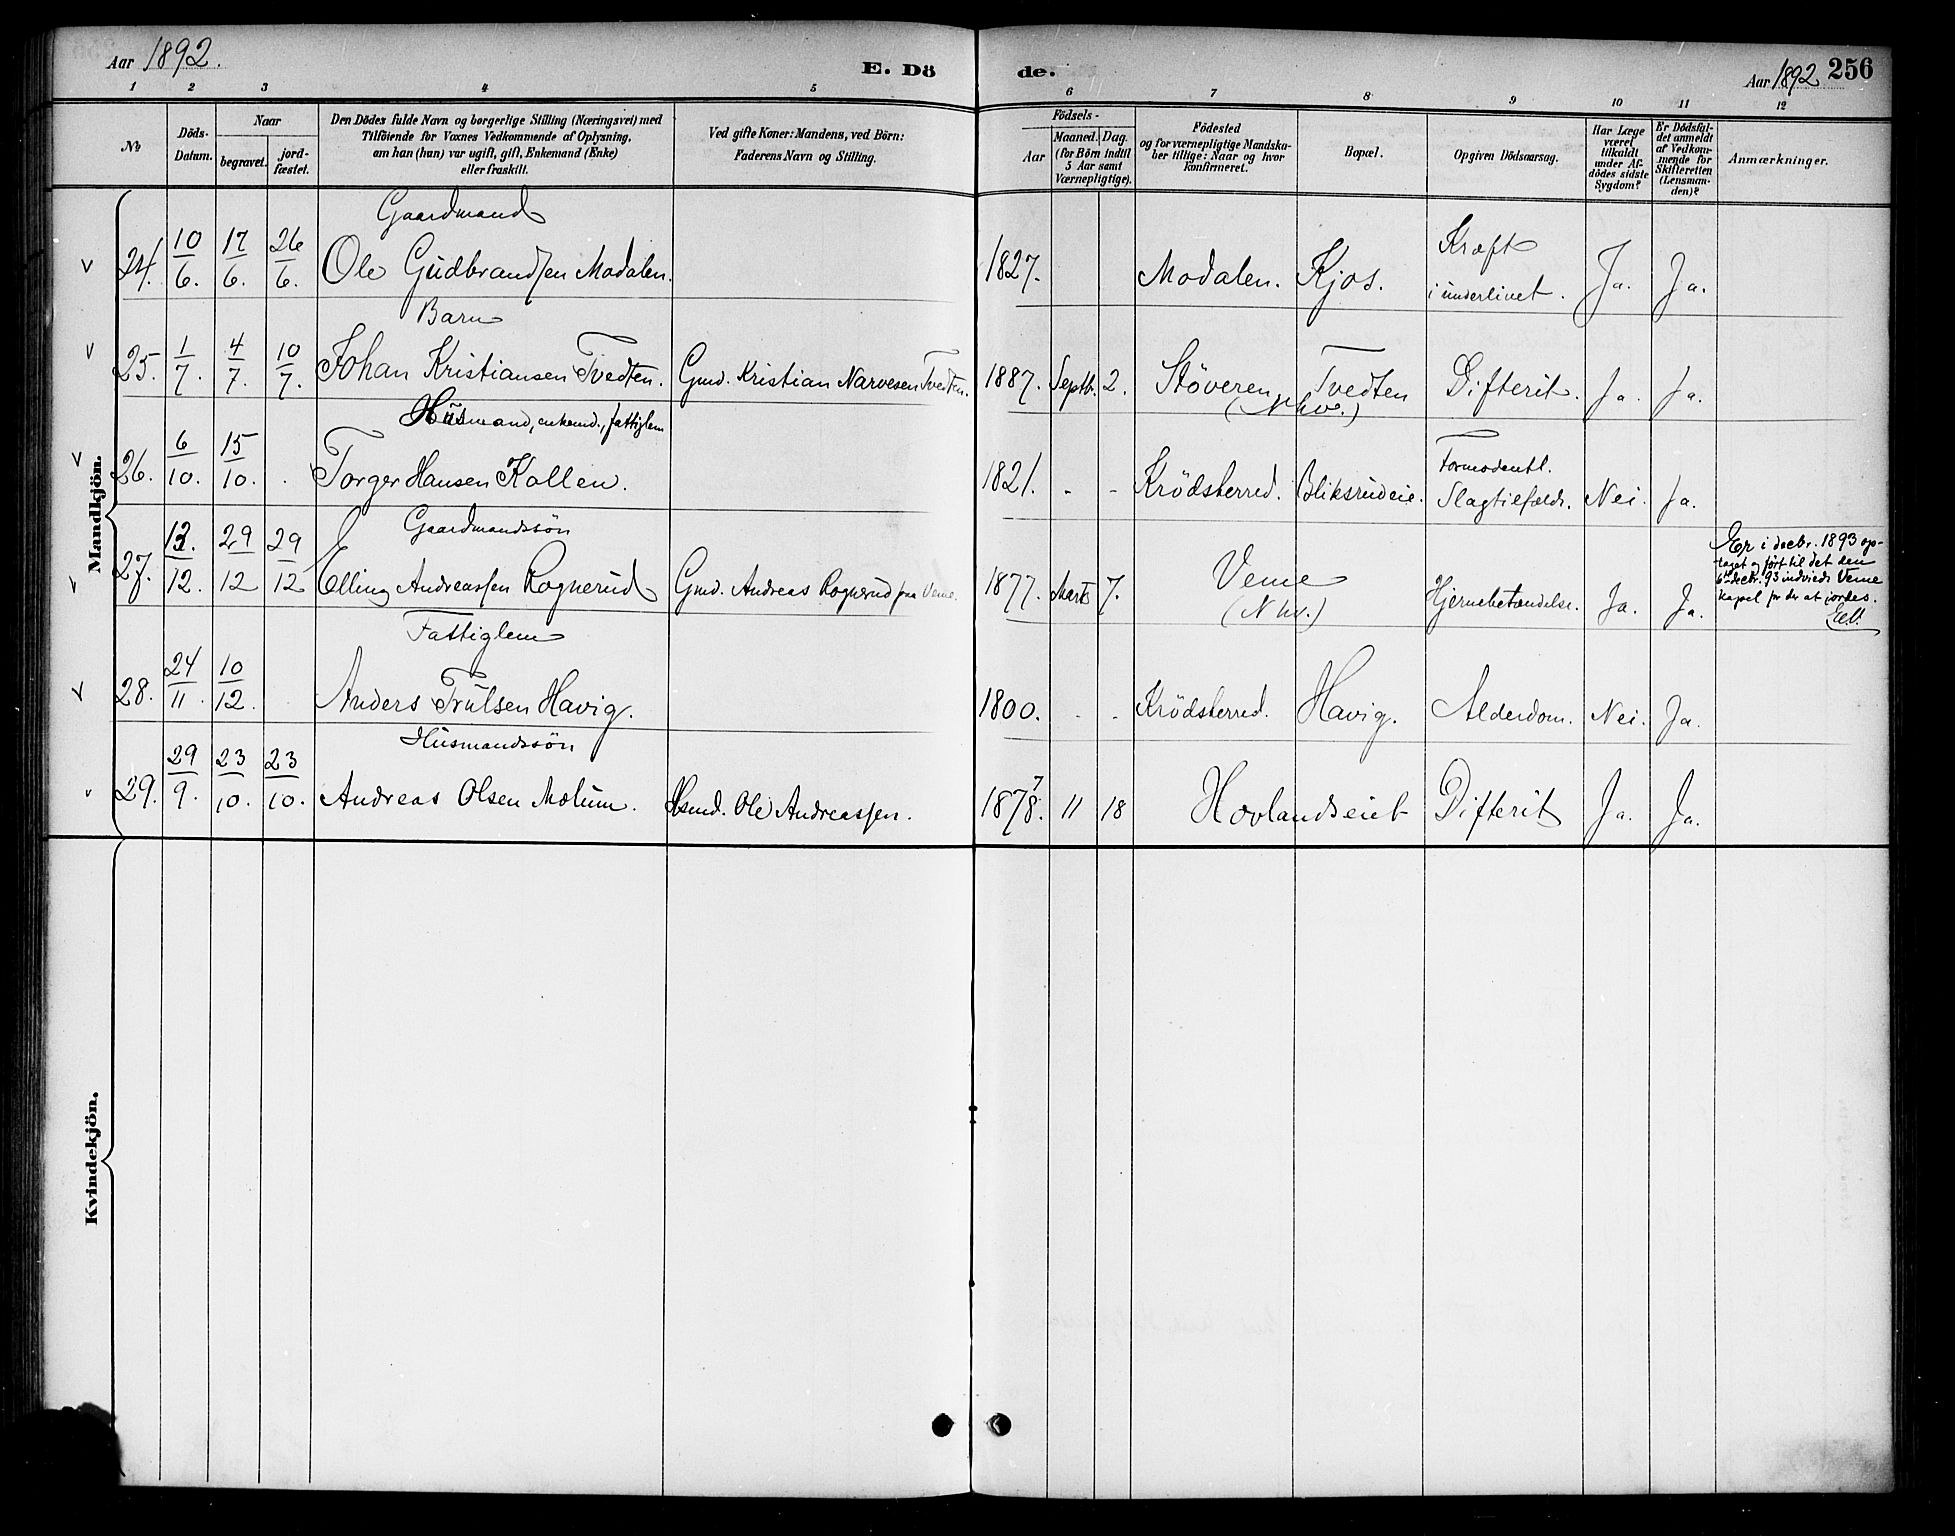 Aar 1892.
E. Döde.
Aar 1892 256
1 2 3 4 5 6 7 8 9 10 11 12
No
Döds-
Datum.
Naar
begravet.
jord-
fæstet.
Den Dödes fulde Navn og borgerlige Stilling (Næringsvei) med
Tilföiende for Voxnes Vedkommende af Oplysning,
om han (hun) var ugift, gift, Enkemand (Enke)
eller fraskilt.
Ved gifte Koner: Mandens, ved Börn:
Faderens Navn og Stilling.
Födsels-
Aar
Maaned. Dag.
(for Börn indtil
5 Aar samt
Værnepligtige).
Födested
og for værnepligtige Mandska-
ber tillige: Naar og hvor
konfirmeret.
Bopæl.
Opgiven Dödsaarsag.
Har Læge
været
tilkaldt
under Af-
dödes sidste
Sygdom?
Er Dödsfal-
det anmeldt
af Vedkom-
mende for
Skifteretten
(Lensman-
den)?
Anmærkninger.
Mandkjön.
Gaardmand
24. 10/6. 17/6. 26/6. Ole Gudbrandsen Modalen. 1827. Modalen. Kjos. Kræft i underlivet. Ja. Ja.
Barn
25. 1/7. 4/7. 10/7. Johan Kristiansen Tvedten. Gmd. Kristian Narvesen Tvedten. 1887. Septbr. 2. Stöveren Tvedten Difterit. Ja. Ja.
(Nhv.)
Husmand, enkemd., fattiglem
26. 6/10. 15/10. . Torger Hansen Kollen. 1821. - - Krödsherred. Bliksrudeie. Formodentl. Slagtilfælde. Nei. Ja.
Gaardmandssön
27. 13./12. 29/12 29/12 Elling Andreassen Rognerud Gmd. Andreas Rognerud paa Veme. 1877. Marts 7. Veme (Nhv.) Hjernebetændelse. Ja. Ja.
Er i decbr. 1893 op-
taget og fört til det den
6te decbr. 93 indviede Veme
kapel for der at jordes.
Fattiglem
28. 24/11. 10/12. Anders Trulsen Havig. 1800. - - Krödsherred. Havig. Alderdom. Nei. Ja.
Husmandssön
29. 29/9. 23/10. 23/10. Andreas Olsen Molum. Hsmd. Ole Andreassen. 1878. 7 11 18 Hovlandseiet Difterit Ja. Ja.
Kvindekjön.